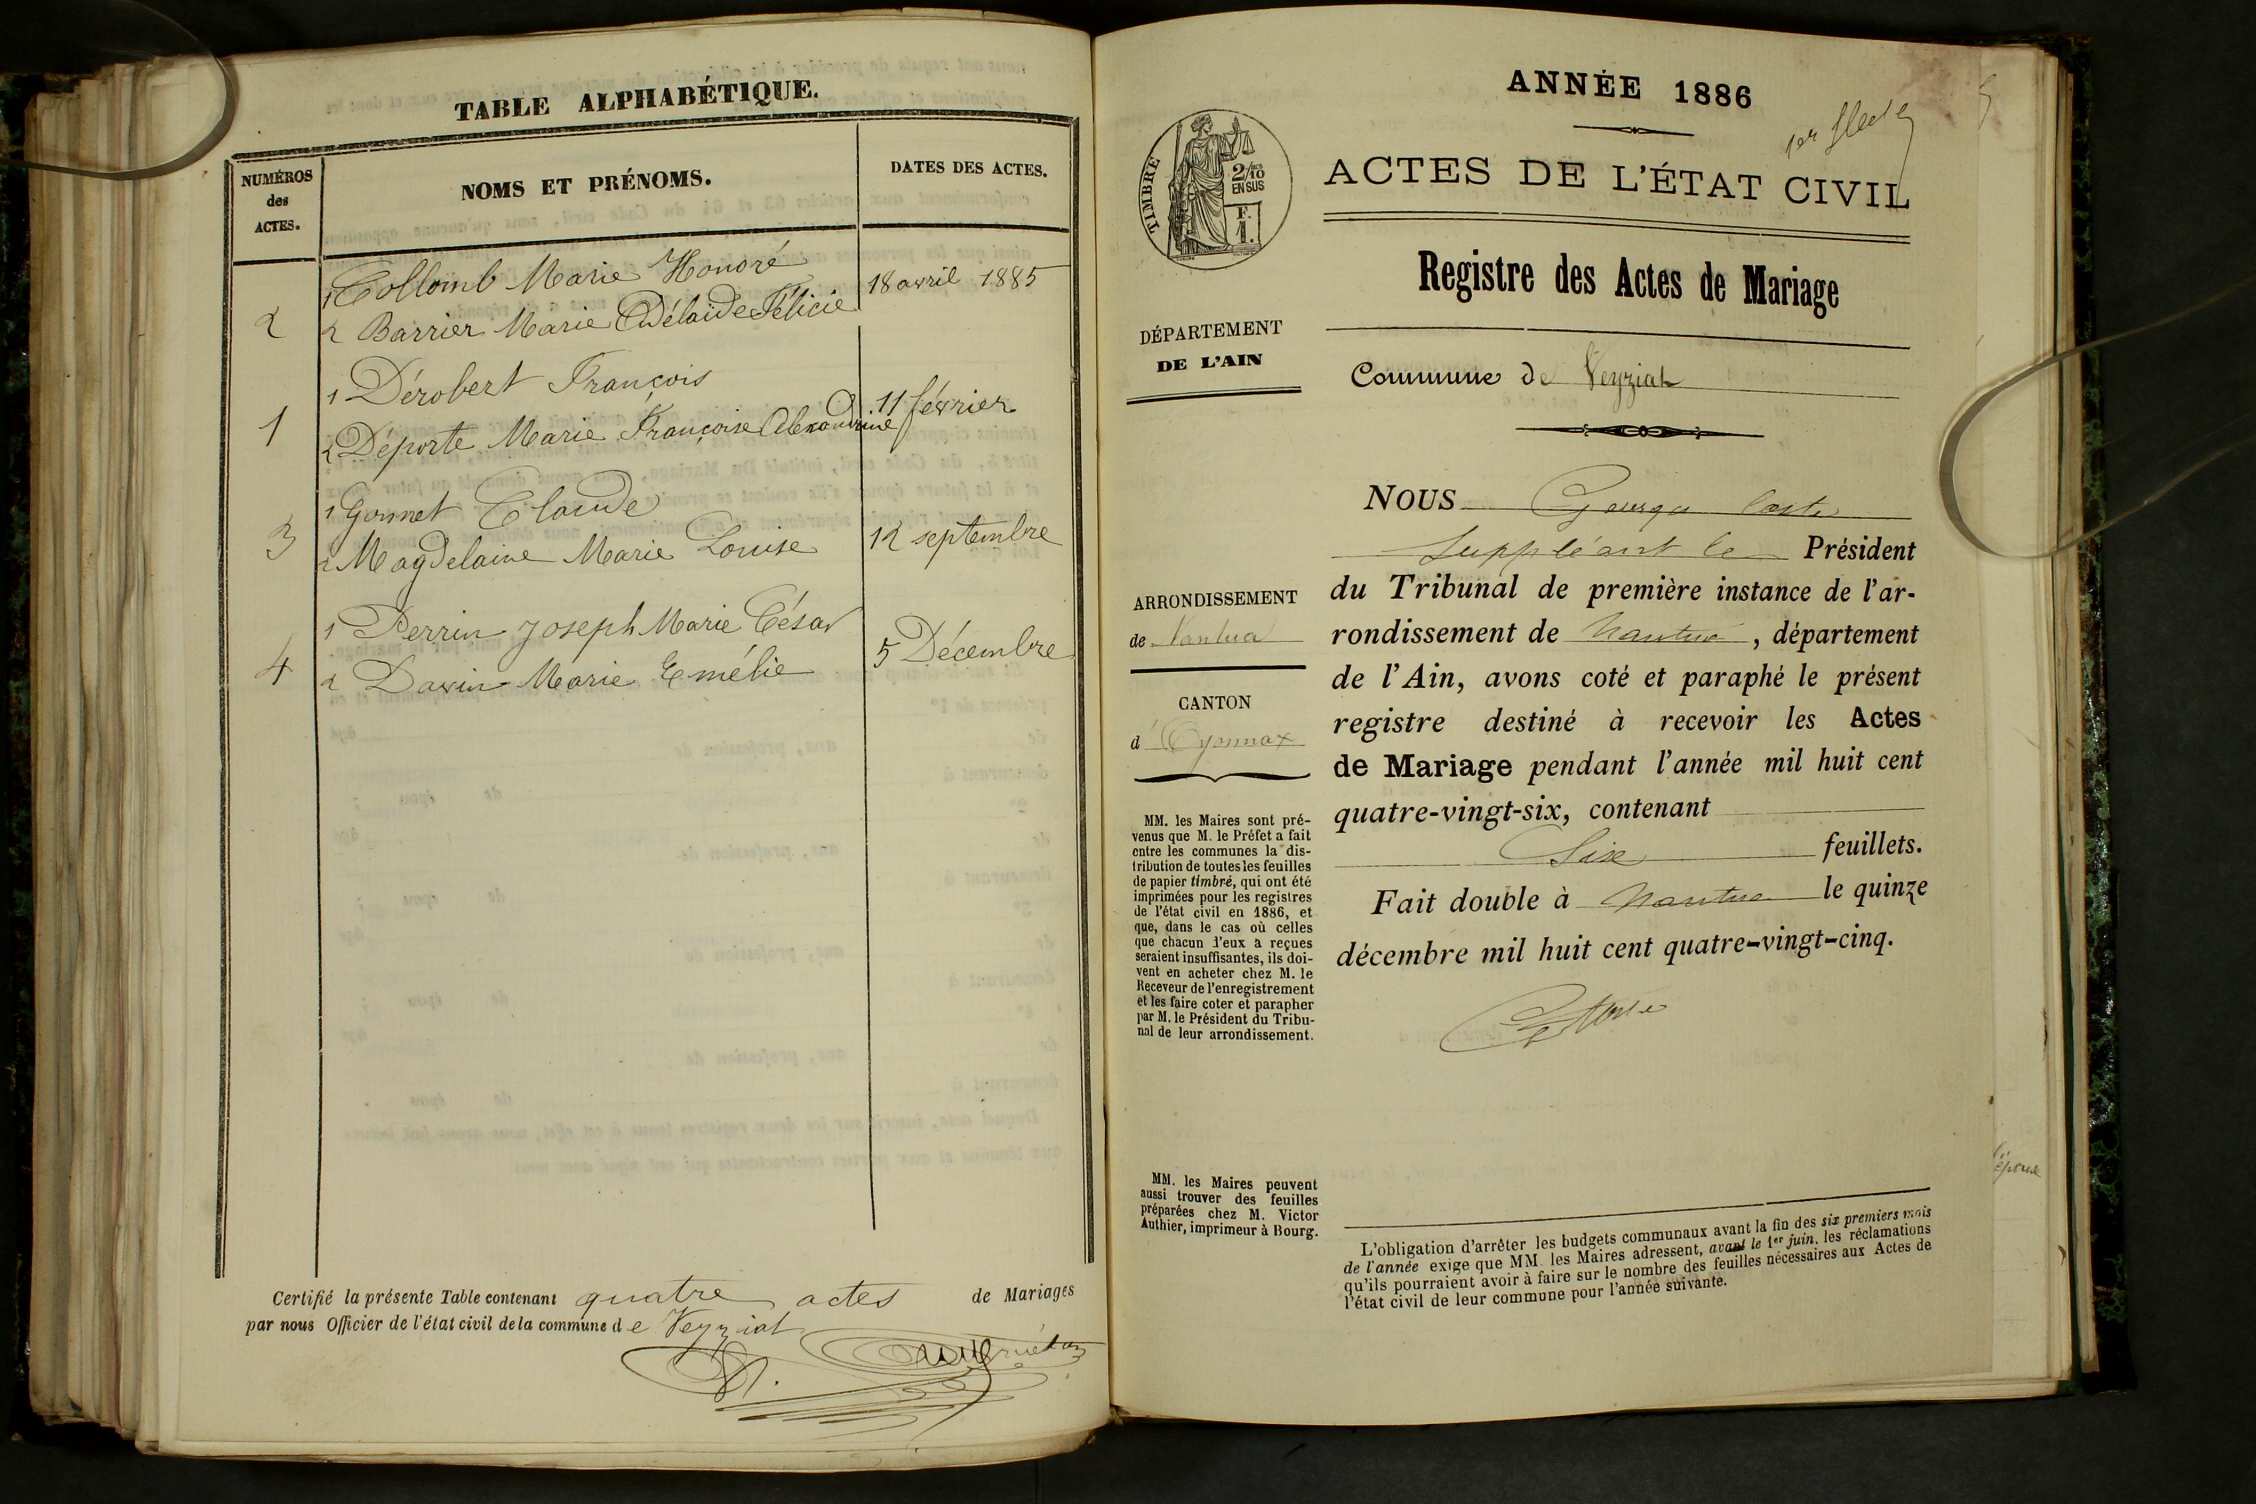 TABLE ALPHABÉTIQUE.
NUMÉROS
des
ACTES.
NOMS ET PRÉNOMS.
DATES DES ACTES.
1 Collomb Marie Honoré
2
2 Barrier Marie Adélaïde Félicie
18 avril 1885
1 Dérobert François
1
2 Déporte Marie Françoise Alexandrine
11 février
1 Gonnet Claude
3
2 Magdelaine Marie Louise
12 septembre
1 Perrin Joseph Marie César
4
2 Davin Marie Emélie
5 Décembre
Certifié la présente Table contenant quatre actes de Mariages
par nous Officier de l'état civil de la commune de Veyziat
ANNÉE 1886
1er
ACTES DE L'ÉTAT CIVIL
TIMBRE
2/10
EN SUS
F.
1.
Registre des Actes de Mariage
DÉPARTEMENT
DE L'AIN
Commune de Veyziat
NOUS
Suppléant le Président
du Tribunal de première instance de l'ar-
rondissement de Nantua, département
de l'Ain, avons coté et paraphé le présent
registre destiné à recevoir les Actes
de Mariage pendant l'année mil huit cent
quatre-vingt-six, contenant
Six feuillets.
Fait double à Nantua le quinze
décembre mil huit cent quatre-vingt-cinq.
ARRONDISSEMENT
de Nantua
CANTON
d'Oyonnax
MM. les Maires sont pré-
venus que M. le Préfet a fait
entre les communes la dis-
tribution de toutes les feuilles
de papier timbré, qui ont été
imprimées pour les registres
de l'état civil en 1886, et
que, dans le cas où celles
que chacun d'eux a reçues
seraient insuffisantes, ils doi-
vent en acheter chez M. le
Receveur de l'enregistrement
et les faire coter et parapher
par M. le Président du Tribu-
nal de leur arrondissement.
MM. les Maires peuvent
aussi trouver des feuilles
préparées chez M. Victor
Authier, imprimeur à Bourg.
L'obligation d'arrêter les budgets communaux avant la fin des six premiers mois
de l'année exige que MM. les Maires adressent, avant le 1er juin, les réclamations
qu'ils pourraient avoir à faire sur le nombre des feuilles nécessaires aux Actes de
l'état civil de leur commune pour l'année suivante.